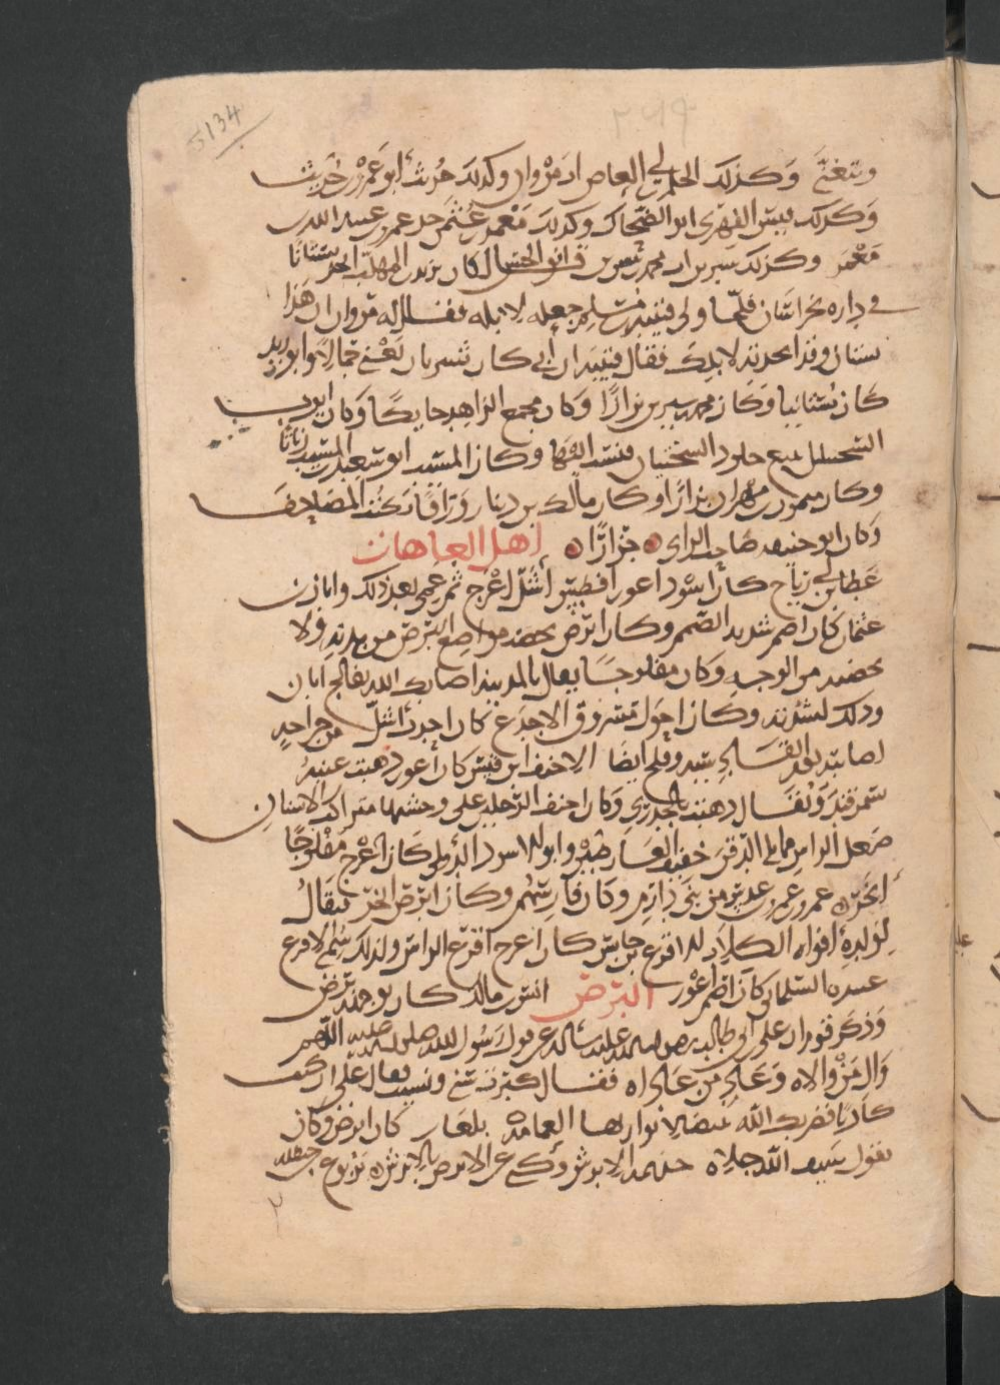 5134
٢٤٩
ويتغنى وكذلك الحكم بن ابي العاص ابو مروان وكذلك حريث ابو عمرو بن حريث
وكذلك قيس الفهري ابو الضحاك وكذلك معمر بن عثمن جد عمر بن عبيد الله بن
معمر وكذلك سيرين ابو محمد بن سيرين كان يزيد بن المهلب اتخذ بستانا
في داره بخراسان فلما ولي قتيبة بن مسلم جعله لابله فقال له مروان ان هذا
بستان وقد اتخذته لابلك فقال قتيبة ان ابي كان اشتربان يعني جمالا وابو يزيد
كان بستانيا وكان محمد بن سيرين بزازا وكان مجمع الزاهد حايكا وكان ايوب
السختياني يبيع جلود السختيان فنسب اليها وكان المسيب ابو سعيد بن المسيب زياتا
وكان ميمون بن مهران بزازا وكان مالك بن دينار وراقا يكتب المصاحف
وكان ابو حنيفه صاحب الراي خزازا اهل العاهات
عطا بن ابي رباح كان اسود اعور افطس اشل اعرج ثم عمي بعد ذلك وابان بن
عثمان كان اصم شديد الصمم وكان ابرص يخضب مواضع البرص من يديه ولا
يخضبه من الوجه وكان مفلوجا يقال بالمدينة اصابك الله بفالج ابان
وذلك لشدته وكان احول مسروق بن الاجدع كان احدب اشل من جراحه
اصابته يوم القادسية وفلج ايضا الاحنف بن قيس كان اعور ذهبت عينه
بسمرقند ويقال ذهبت بالجدري وكان احنف الرجلين على وحشيها متراكب الاسنان
صعل الراس مايل الذقن خفيف العارضين وابو الاسود الدولي كان اعرج مفلوجا
ابخر عمرو بن عمرو بن عدس من بني دارم وكان فارسهم وكان ابرص ابخر فيقال
لولده افواه الكلاب الاقرع بن حابس كان اعرج اقرع الراس ولذلك سمي الاقرع
عبيده السلماني كان اصم اعور البرص انس بن مالك كان بوجهه برص
وذكر قوم ان علي بن ابي طالب رضي الله عنه ساله عن قول رسول الله صلى الله عليه اللهم
وال من والاه وعاد من عاداه فقال كبرت سني ونسيت فقال علي ان كنت
كاذبا فضربك الله ببيضا لا تواريها العمامه بلعا بن كان ابرص وكان
يقول سيف الله جلاه جذيمه الابرش وكني عن الابرص بالابرش يربوع بن حنظله